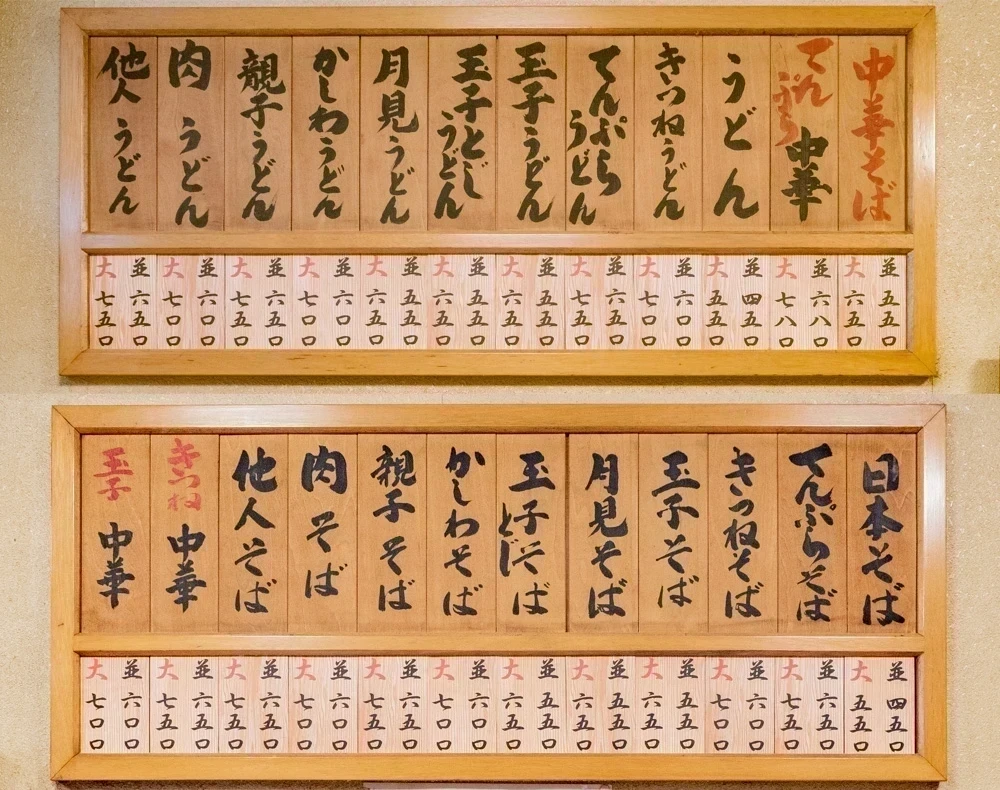 中華そば
並 五五〇
大 六五〇
てんぷら中華
並 六八〇
大 七八〇
うどん
並 四五〇
大 五五〇
きつねうどん
並 六〇〇
大 七〇〇
てんぷらうどん
並 六五〇
大 七五〇
玉子うどん
並 五五〇
大 六五〇
玉子とじうどん
並 五五〇
大 六五〇
月見うどん
並 五五〇
大 六五〇
かしわうどん
並 六〇〇
大 七〇〇
親子うどん
並 六五〇
大 七五〇
肉うどん
並 六〇〇
大 七〇〇
他人うどん
並 六五〇
大 七五〇
日本そば
並 四五〇
大 五五〇
てんぷらそば
並 六五〇
大 七五〇
きつねそば
並 六〇〇
大 七〇〇
玉子そば
並 五五〇
大 六五〇
月見そば
並 五五〇
大 六五〇
玉子とじそば
並 五五〇
大 六五〇
かしわそば
並 六〇〇
大 七〇〇
親子そば
並 六五〇
大 七五〇
肉そば
並 六〇〇
大 七〇〇
他人そば
並 六五〇
大 七五〇
きつね中華
並 六五〇
大 七五〇
玉子中華
並 六〇〇
大 七〇〇